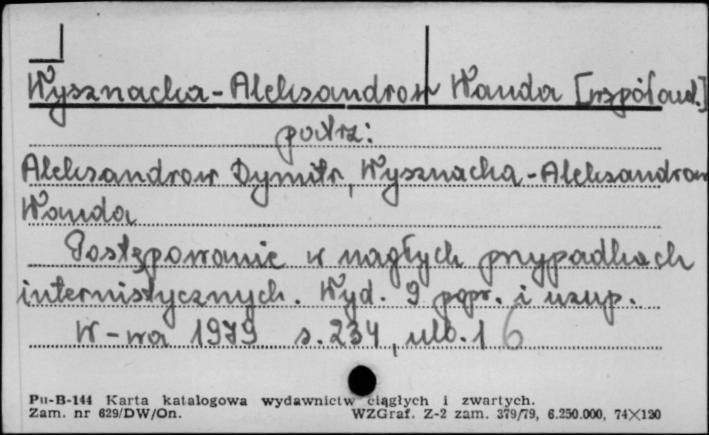 Wysznacka-Aleksandrow Wanda [współaut.]
patrz:
Aleksandrow Dymitr, Wysznacka-Aleksandrow
Wanda
Postępowanie w nagłych przypadkach
internistycznych. Wyd. 9 popr. i uzup.
W-wa 1979 s. 234, ulb. 1 6
Pu-B-144 Karta katalogowa wydawnictw ciągłych i zwartych.
Zam. nr 629/DW/On. WZGraf. Z-2 zam. 379/79, 6.250.000, 74×120